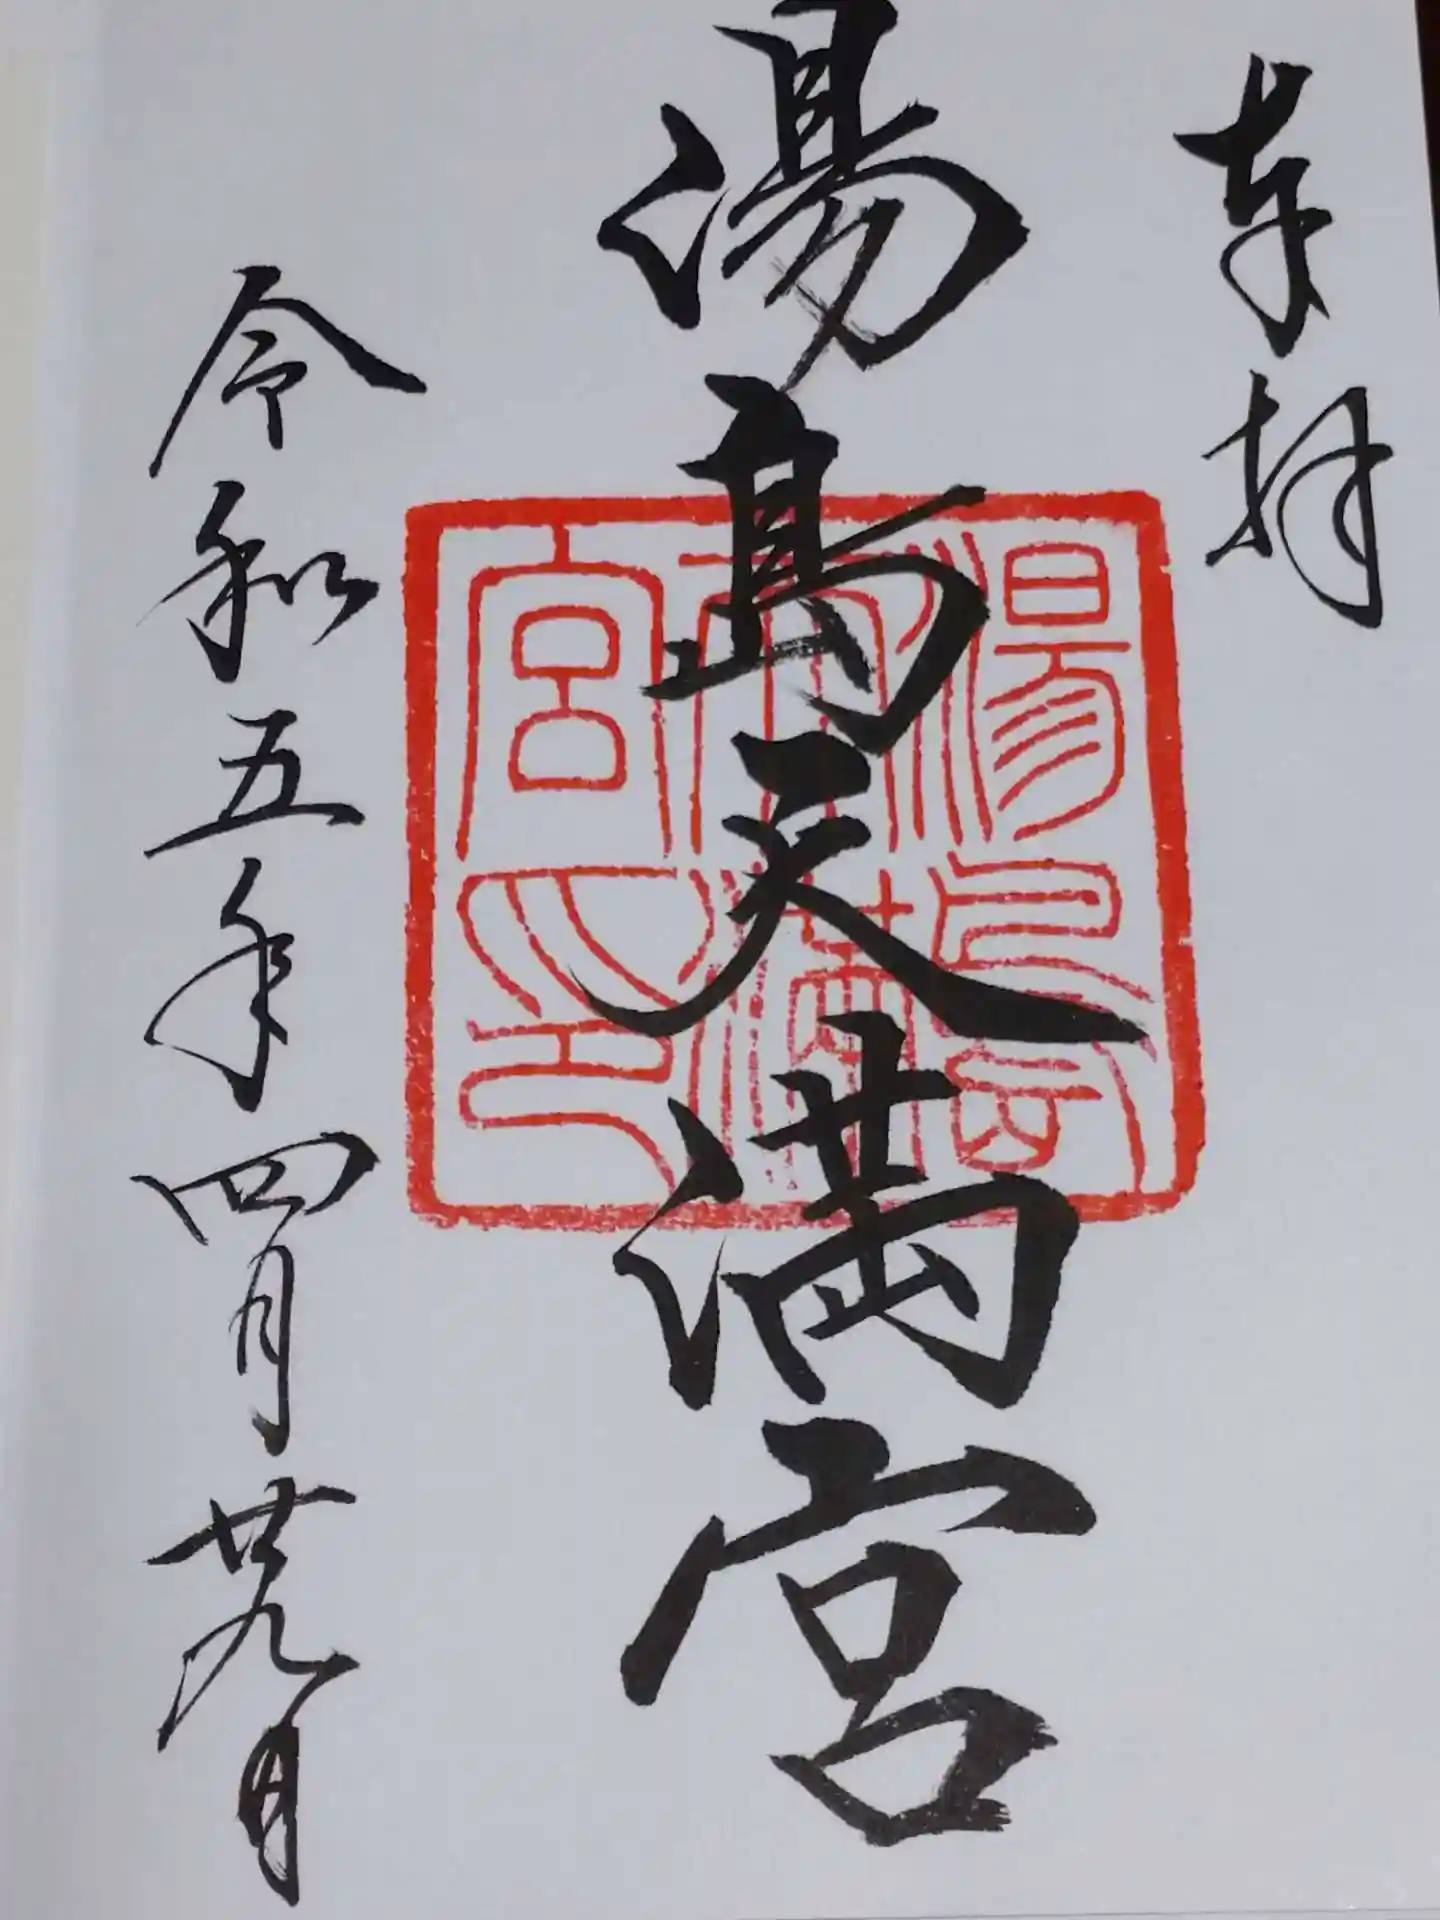 奉拝
湯島天満宮
湯島天満宮之印
令和五年四月廿九日